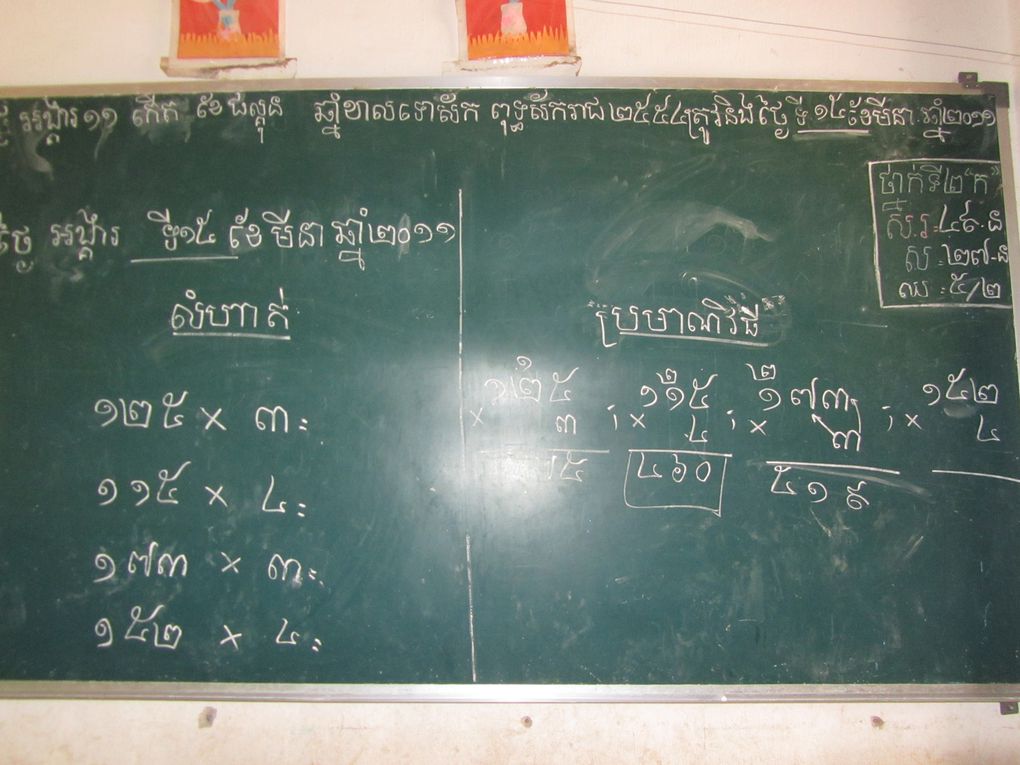 អង្គារ ១១ កើត ខែ ផល្គុន ឆ្នាំខាលទោស័ក ពុទ្ធស័ករាជ ២៥៥៤ ត្រូវនិងថ្ងៃ ទី ១៥ ខែមីនា ឆ្នាំ២០១១
ថ្ងៃ អង្គារ ទី១៥ ខែ មីនា ឆ្នាំ២០១១
លំហាត់
១២៥ x ៣ =
១១៥ x ៤ =
១៧៣ x ៣ =
១៥២ x ៤ =
ថ្នាក់ទី២"ក"
ស.រ = ៤៩.ន
ស = ២៧-ន
ឈ = ៥/២
"ប្រមាណវិធី"
១ ២ ២
១២៥ ១១៥ ១៧៣ ១៥២
x ៣ ; x ៤ ; x ៣ ; x ៤
៤៦០ ៥១៩